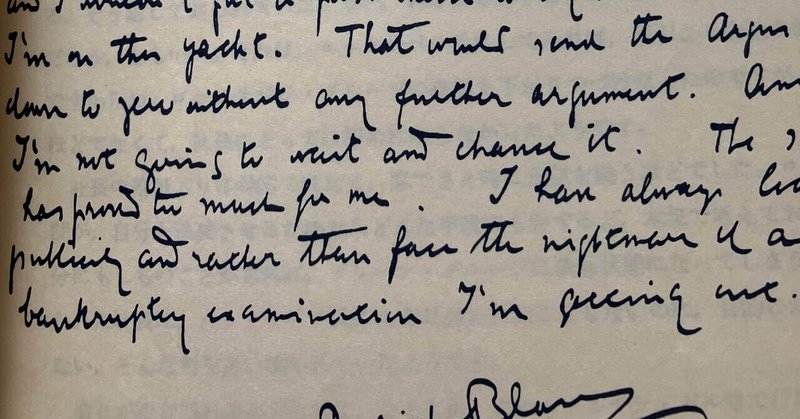 I'm on this yacht. That would send the Argus
down to zero without any further argument. And
I'm not going to wait and chance it. The
has proved too much for me. I have always
publicity and rather than face the nightmare of a
bankruptcy examination I'm getting out.